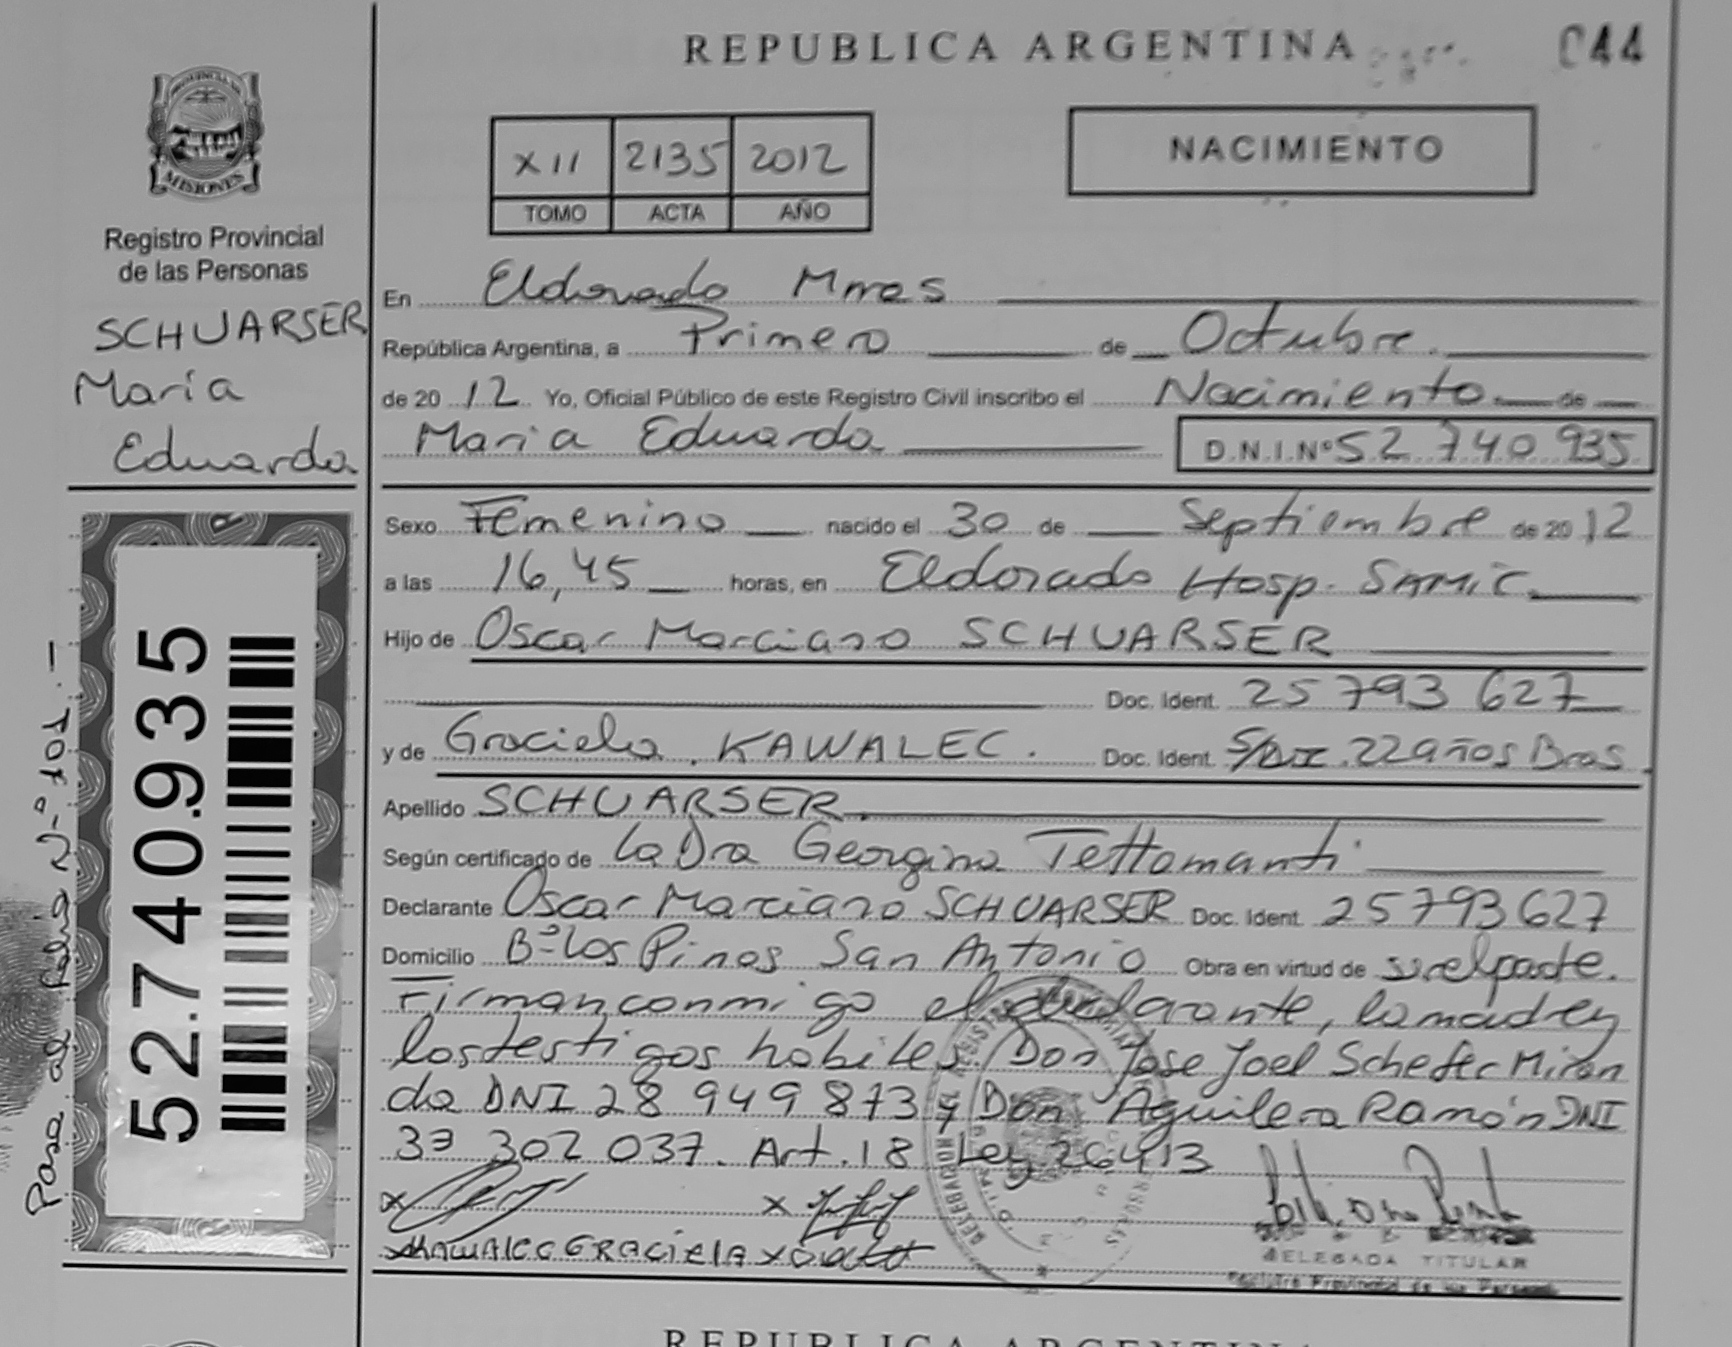 REPUBLICA ARGENTINA
044
PROVINCIA DE
MISIONES
Registro Provincial
de las Personas
SCHUARSER
Maria
Eduarda
52.740.935
Pase al folio N-º 101.-
XII 2135 2012
TOMO ACTA AÑO
NACIMIENTO
En Eldorado Mnes
República Argentina, a Primero de Octubre.
de 2012 Yo, Oficial Público de este Registro Civil inscribo el Nacimiento de
Maria Eduarda D.N.I.Nº 52 740 935
Sexo Femenino nacido el 30 de Septiembre de 2012
a las 16,45 horas, en Eldorado Hosp. SAMIC.
Hijo de Oscar Marciano SCHUARSER
Doc. Ident. 25 793 627
y de Graciela KAWALEC. Doc. Ident. S/DNI. 22 años Bras.
Apellido SCHUARSER.
Según certificado de la Dra Georgina Tettamanti
Declarante Oscar Marciano SCHUARSER Doc. Ident. 25793627
Domicilio Bº los Pinos San Antonio Obra en virtud de ser el padre.
Firman conmigo el declarante, la madre y
los testigos habiles Don Jose Joel Schefer Miran
da DNI 28 949 873 y Don Aguilera Ramón DNI
33 302 037. Art. 18 Ley 26413
KAWALEC GRACIELA
DELEGADA TITULAR
Registro Provincial de las Personas
REPUBLICA ARGENTINA